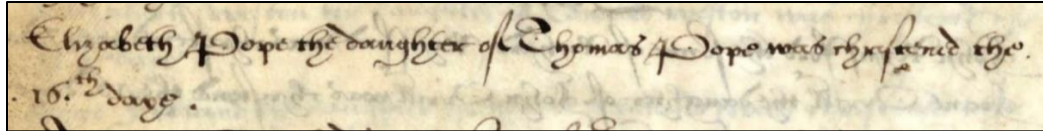 Elizabeth Pope the daughter of Thomas Pope was christend the.
. 16.th daye .